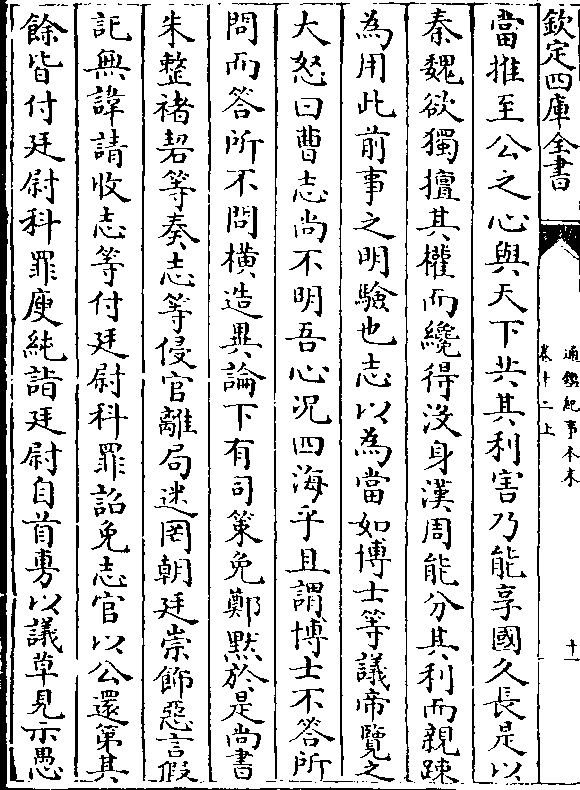 欽定四庫全書
通鑑紀事本末
卷十二上
十一
當推至公之心與天下共其利害乃能享國久長是以
秦魏欲獨擅其權而纔得沒身漢周能分其利而親疎
為用此前事之明驗也志以為當如博士等議帝覽之
大怒曰曹志尚不明吾心况四海乎且謂博士不答所
問而答所不問橫造異論下有司策免鄭默於是尚書
朱整褚䂮等奏志等侵官離局迷罔朝廷崇飾惡言假
託無諱請收志等付廷尉科罪詔免志官以公還第其
餘皆付廷尉科罪庾純詣廷尉自首旉以議草見示愚